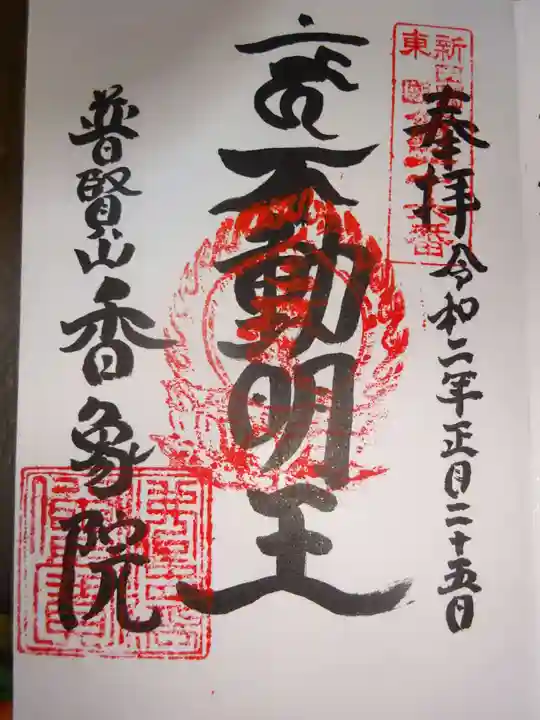 奉拝
令和二年正月二十五日
不動明王
普賢山香象院